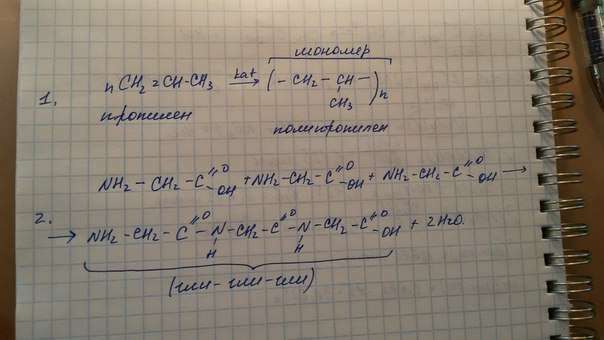 мономер
1. nCH₂=CH-CH₃ kat→ (-CH₂-CH-)n
CH₃
пропилен полипропилен
NH₂-CH₂-C=O-OH + NH₂-CH₂-C=O-OH + NH₂-CH₂-C=O-OH →
2. → NH₂-CH₂-C=O-N-CH₂-C=O-N-CH₂-C=O-OH + 2H₂O.
H H
(гли-гли-гли)